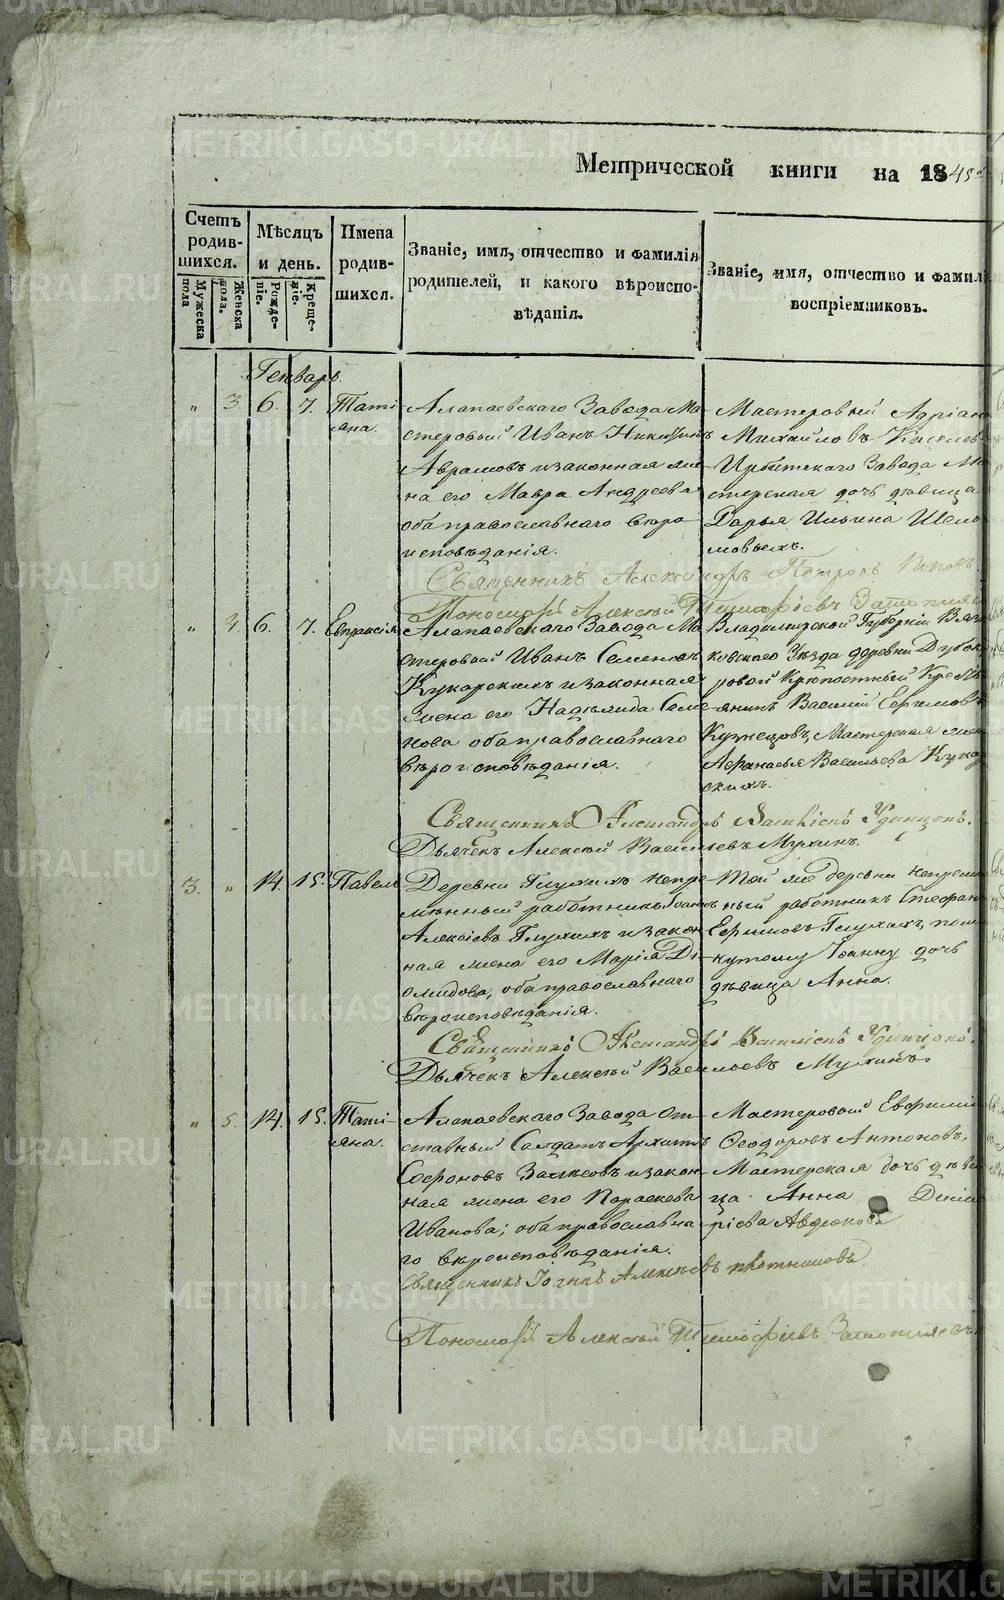 Метрической книги на 1845
Счетъ родившихся.
Мужеска пола
Женска пола.
Мѣсяцъ и день.
Рожденіе.
Крещеніе.
Имена родившихся.
Званіе, имя, отчество и фамилія
родителей, и какого вѣроиспо-
вѣданія.
Званіе, имя, отчество и фамилі
воспріемниковъ.
Генварь.
„ 3. 6. 7. Таті
яна.
Алапаевскаго Завода Ма-
стеровой Иванъ Никитинъ
Аврамовъ и законная же-
на его Мавра Андреева
оба православнаго вѣро-
исповѣданія.
Мастеровый Адріанъ
Михайловъ Киселевъ
Ирбитскаго Завода Ма
стерская дочь дѣвица
Дарья Ильина Шело
мовыхъ.
Священникъ Александръ Петровъ Поповъ
Пономарь Алексѣй Тимофѣевъ
„ 4. 6. 7. Евпраксія
Алапаевскаго Завода Ма
стеровой Иванъ Семеновъ
Кукарскихъ и законная
жена его Надежда Семе
нова оба православнаго
вѣроисповѣданія.
Владимирской Губерніи Вяз
ковскаго Уѣзда деревни Дубок
ровой Крѣпостный Кресть
янинъ Василій Ефимовъ
Кузнецовъ, Мастерская жен
Афанасья Васильева Кукар
скихъ.
Священникъ Александръ Удинцовъ.
Дьячекъ Алексѣй Васильевъ Мухинъ.
3. „ 14. 15. Павелъ
Деревни Глухихъ непре
мѣнный работникъ Іоанъ
Алексіевъ Глухихъ и закон
ная жена его Марія Ді
омидова, оба православнаго
вѣроисповѣданія.
Той же деревни непрем
ный работникъ Стефанъ
Ефимовъ Глухихъ,
Іоанну дочь
дѣвица Анна.
Священникъ Александръ Удинцовъ.
Дьячекъ Алексѣй Васильевъ Мухинъ.
„ 5. 14. 15. Таті
яна.
Алапаевскаго Завода От-
ставный Салдатъ Архипъ
Софроновъ и закон-
ная жена его Параскева
Иванова; оба православна-
го вѣроисповѣданія.
Мастеровой Евфимій
Ѳеодоровъ Антоновъ.
Мастерская дочь дѣви
ца Анна Дені
Священникъ Іоаннъ Алексѣевъ
Пономарь Алексѣй Тимофѣевъ
METRIKI.GASO-URAL.RU